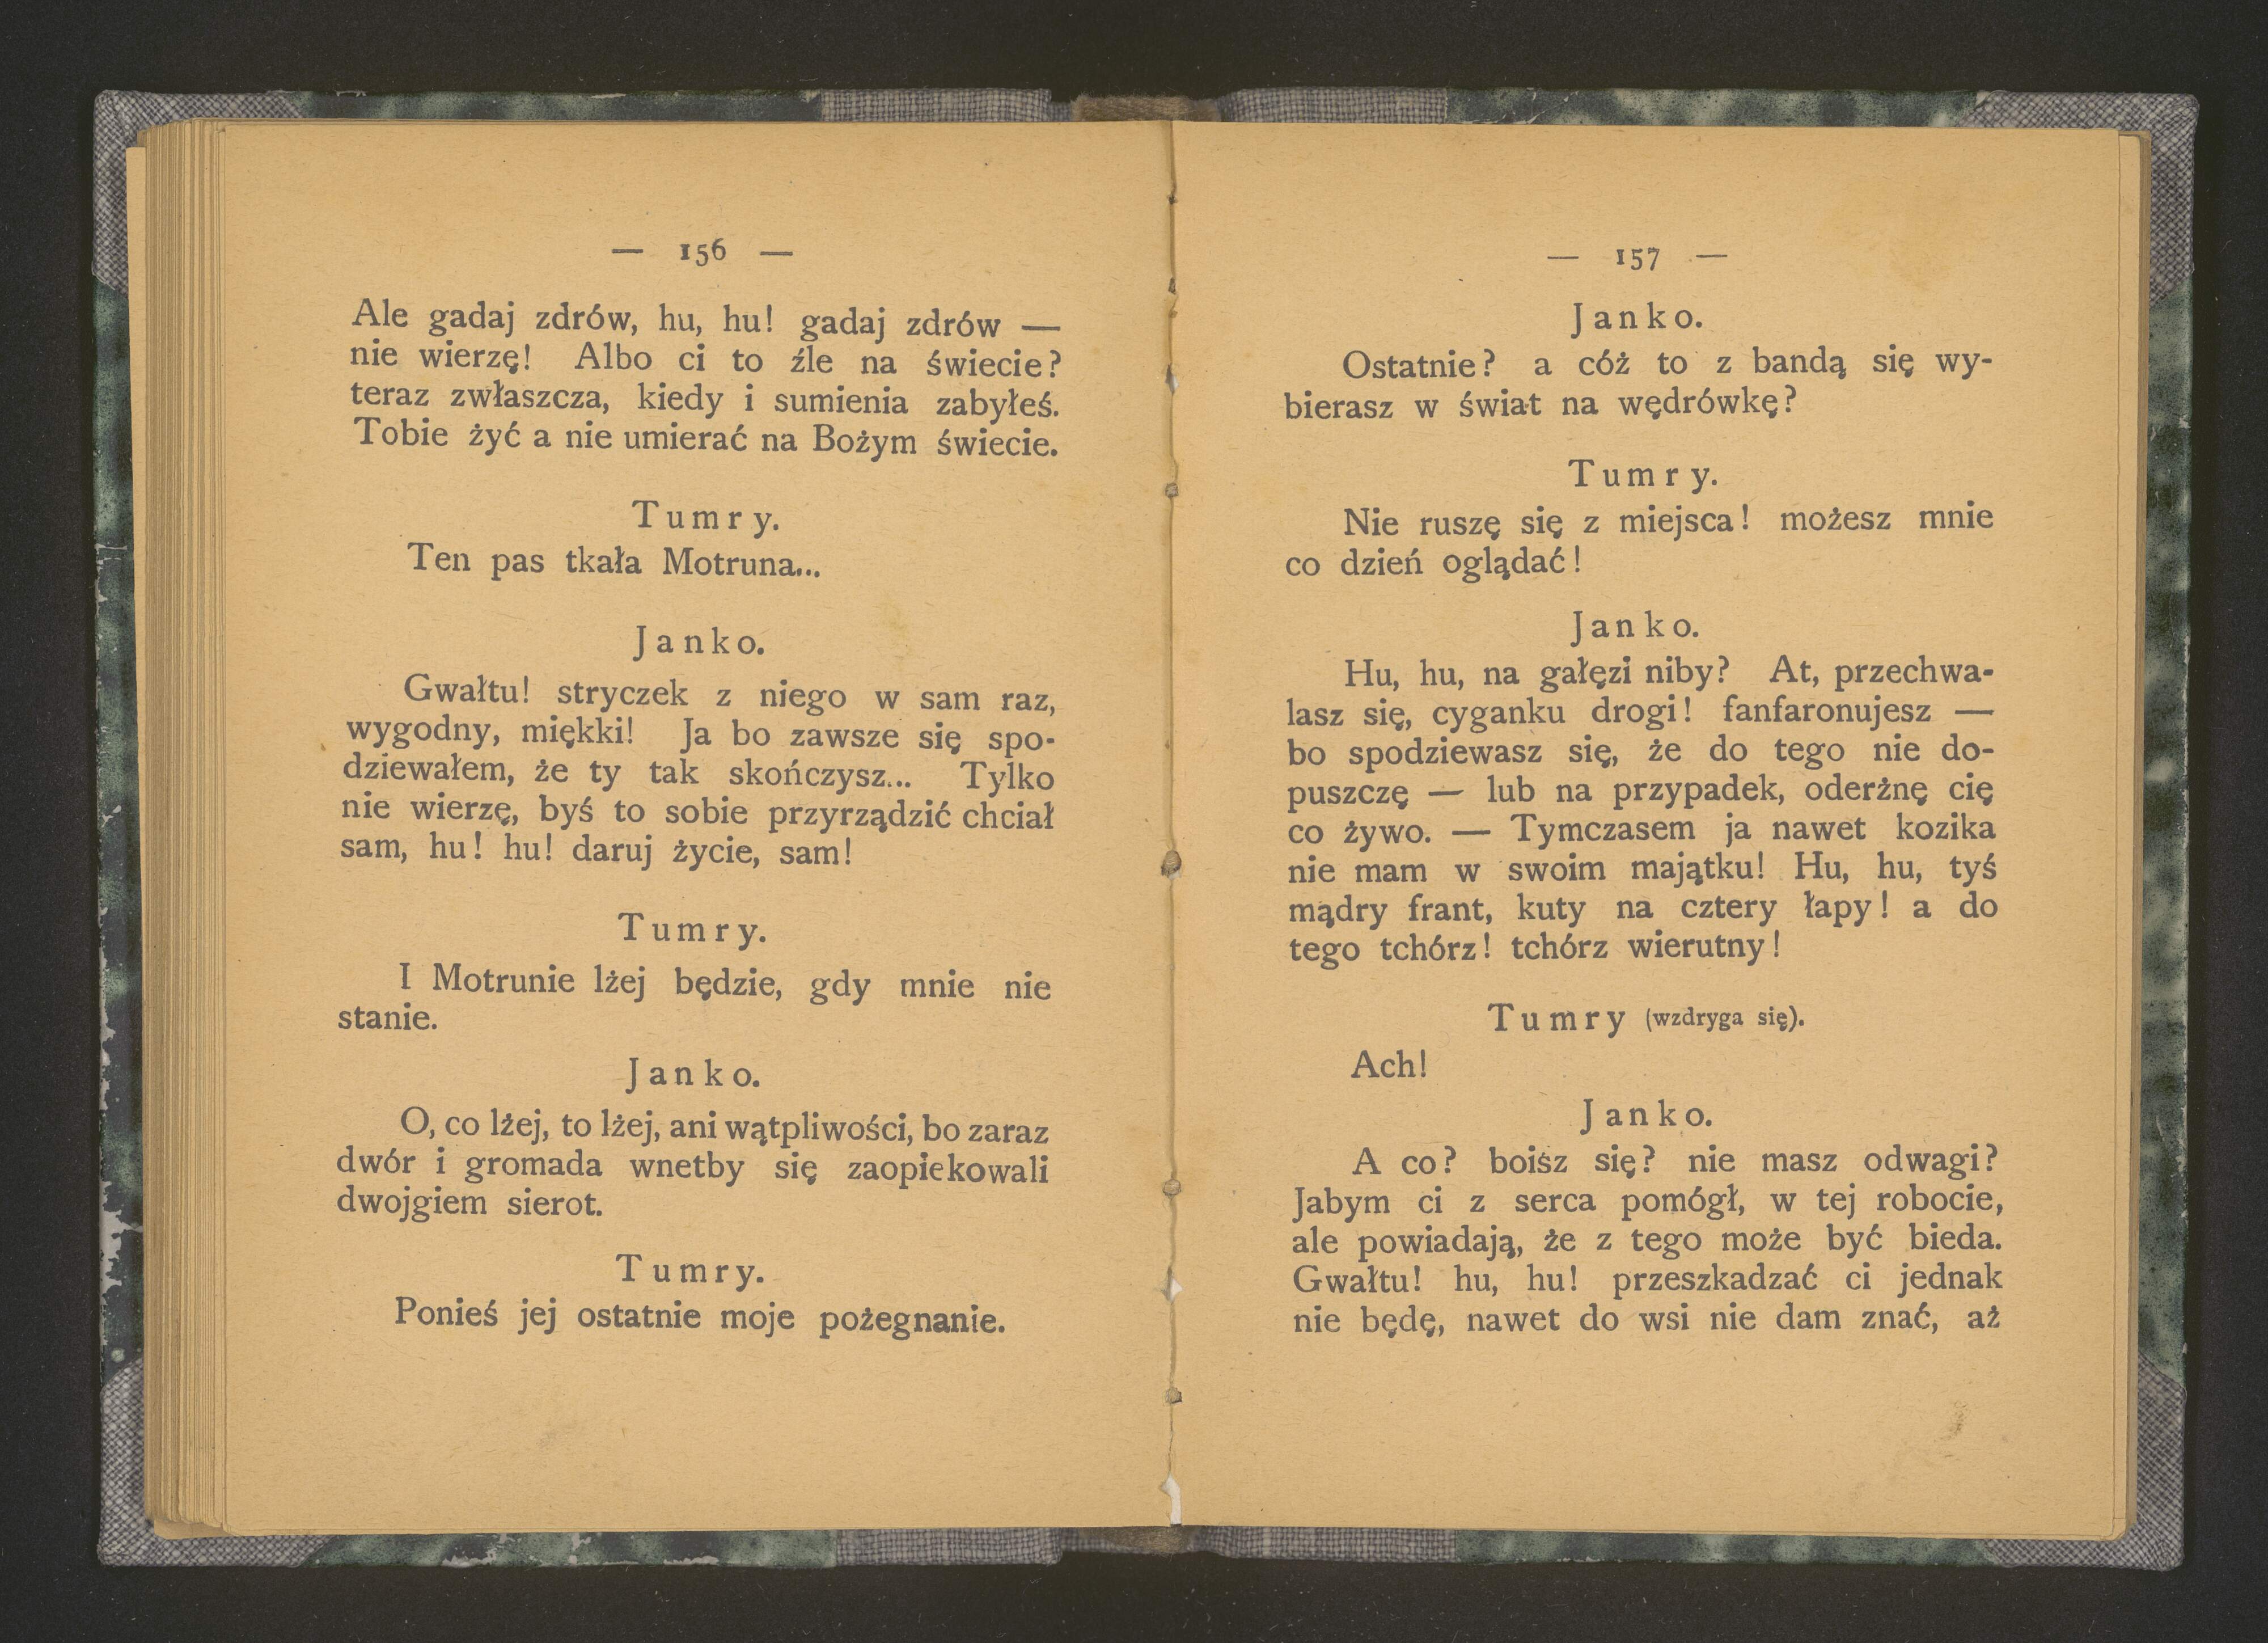 — 156 —
Ale gadaj zdrów, hu, hu! gadaj zdrów —
nie wierzę! Albo ci to źle na świecie?
teraz zwłaszcza, kiedy i sumienia zabyłeś.
Tobie żyć a nie umierać na Bożym świecie.
Tumry.
Ten pas tkała Motruna...
Janko.
Gwałtu! stryczek z niego w sam raz,
wygodny, miękki! Ja bo zawsze się spo-
dziewałem, że ty tak skończysz... Tylko
nie wierzę, byś to sobie przyrządzić chciał
sam, hu! hu! daruj życie, sam!
Tumry.
I Motrunie lżej będzie, gdy mnie nie
stanie.
Janko.
O, co lżej, to lżej, ani wątpliwości, bo zaraz
dwór i gromada wnetby się zaopiekowali
dwojgiem sierot.
Tumry.
Ponieś jej ostatnie moje pożegnanie.
— 157 —
Janko.
Ostatnie? a cóż to z bandą się wy-
bierasz w świat na wędrówkę?
Tumry.
Nie ruszę się z miejsca! możesz mnie
co dzień oglądać!
Janko.
Hu, hu, na gałęzi niby? At, przechwa-
lasz się, cyganku drogi! fanfaronujesz —
bo spodziewasz się, że do tego nie do-
puszczę — lub na przypadek, oderżnę cię
co żywo. — Tymczasem ja nawet kozika
nie mam w swoim majątku! Hu, hu, tyś
mądry frant, kuty na cztery łapy! a do
tego tchórz! tchórz wierutny!
Tumry (wzdryga się).
Ach!
Janko.
A co? boisz się? nie masz odwagi?
Jabym ci z serca pomógł, w tej robocie,
ale powiadają, że z tego może być bieda.
Gwałtu! hu, hu! przeszkadzać ci jednak
nie będę, nawet do wsi nie dam znać, aż